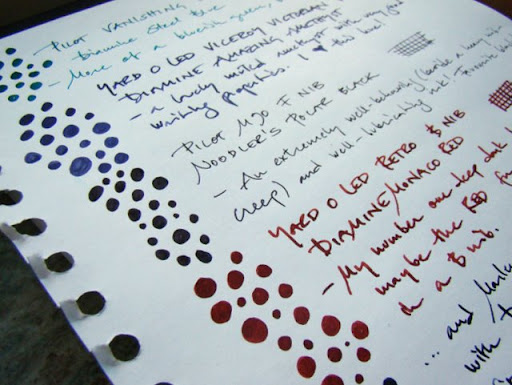 PILOT VANISHING
Diamine Steel Blue
- More of a blueish green,
YARD O LED VICEROY VICTORIAN
DIAMINE AMAZING AMETHYST
- A lovely muted amethyst with very good
writing properties. I ♥ this ink!
PILOT M90 F NIB
NOODLER'S POLAR BLACK
- An extremely well-behaved (besides a
creep) and well-lubricating ink! Favorite
YARD O LED RETRO B NIB
DIAMINE MONACO RED
- My number one deep dark
maybe the RED
in a B nib.
... and
with